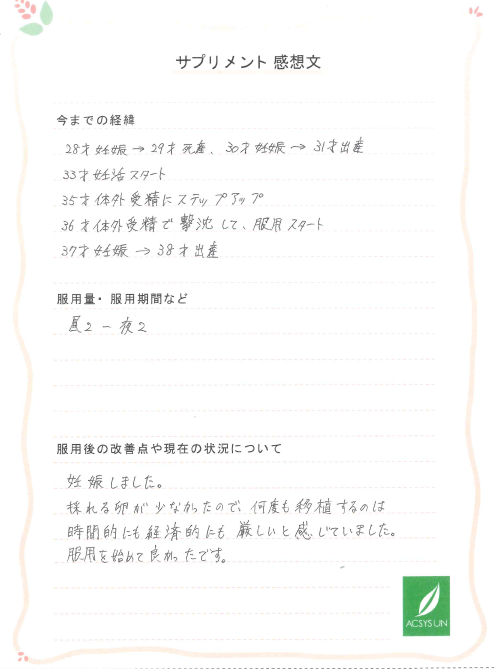 サプリメント 感想文
今までの経緯
28才妊娠→29才死産、30才妊娠→31才出産
33才妊活スタート
35才体外受精にステップアップ
36才体外受精で撃沈して、服用スタート
37才妊娠→38才出産
服用量・服用期間など
昼2－夜2
服用後の改善点や現在の状況について
妊娠しました。
採れる卵が少なかったので、何度も移植するのは
時間的にも経済的にも厳しいと感じていました。
服用を始めて良かったです。
ACSYSUN